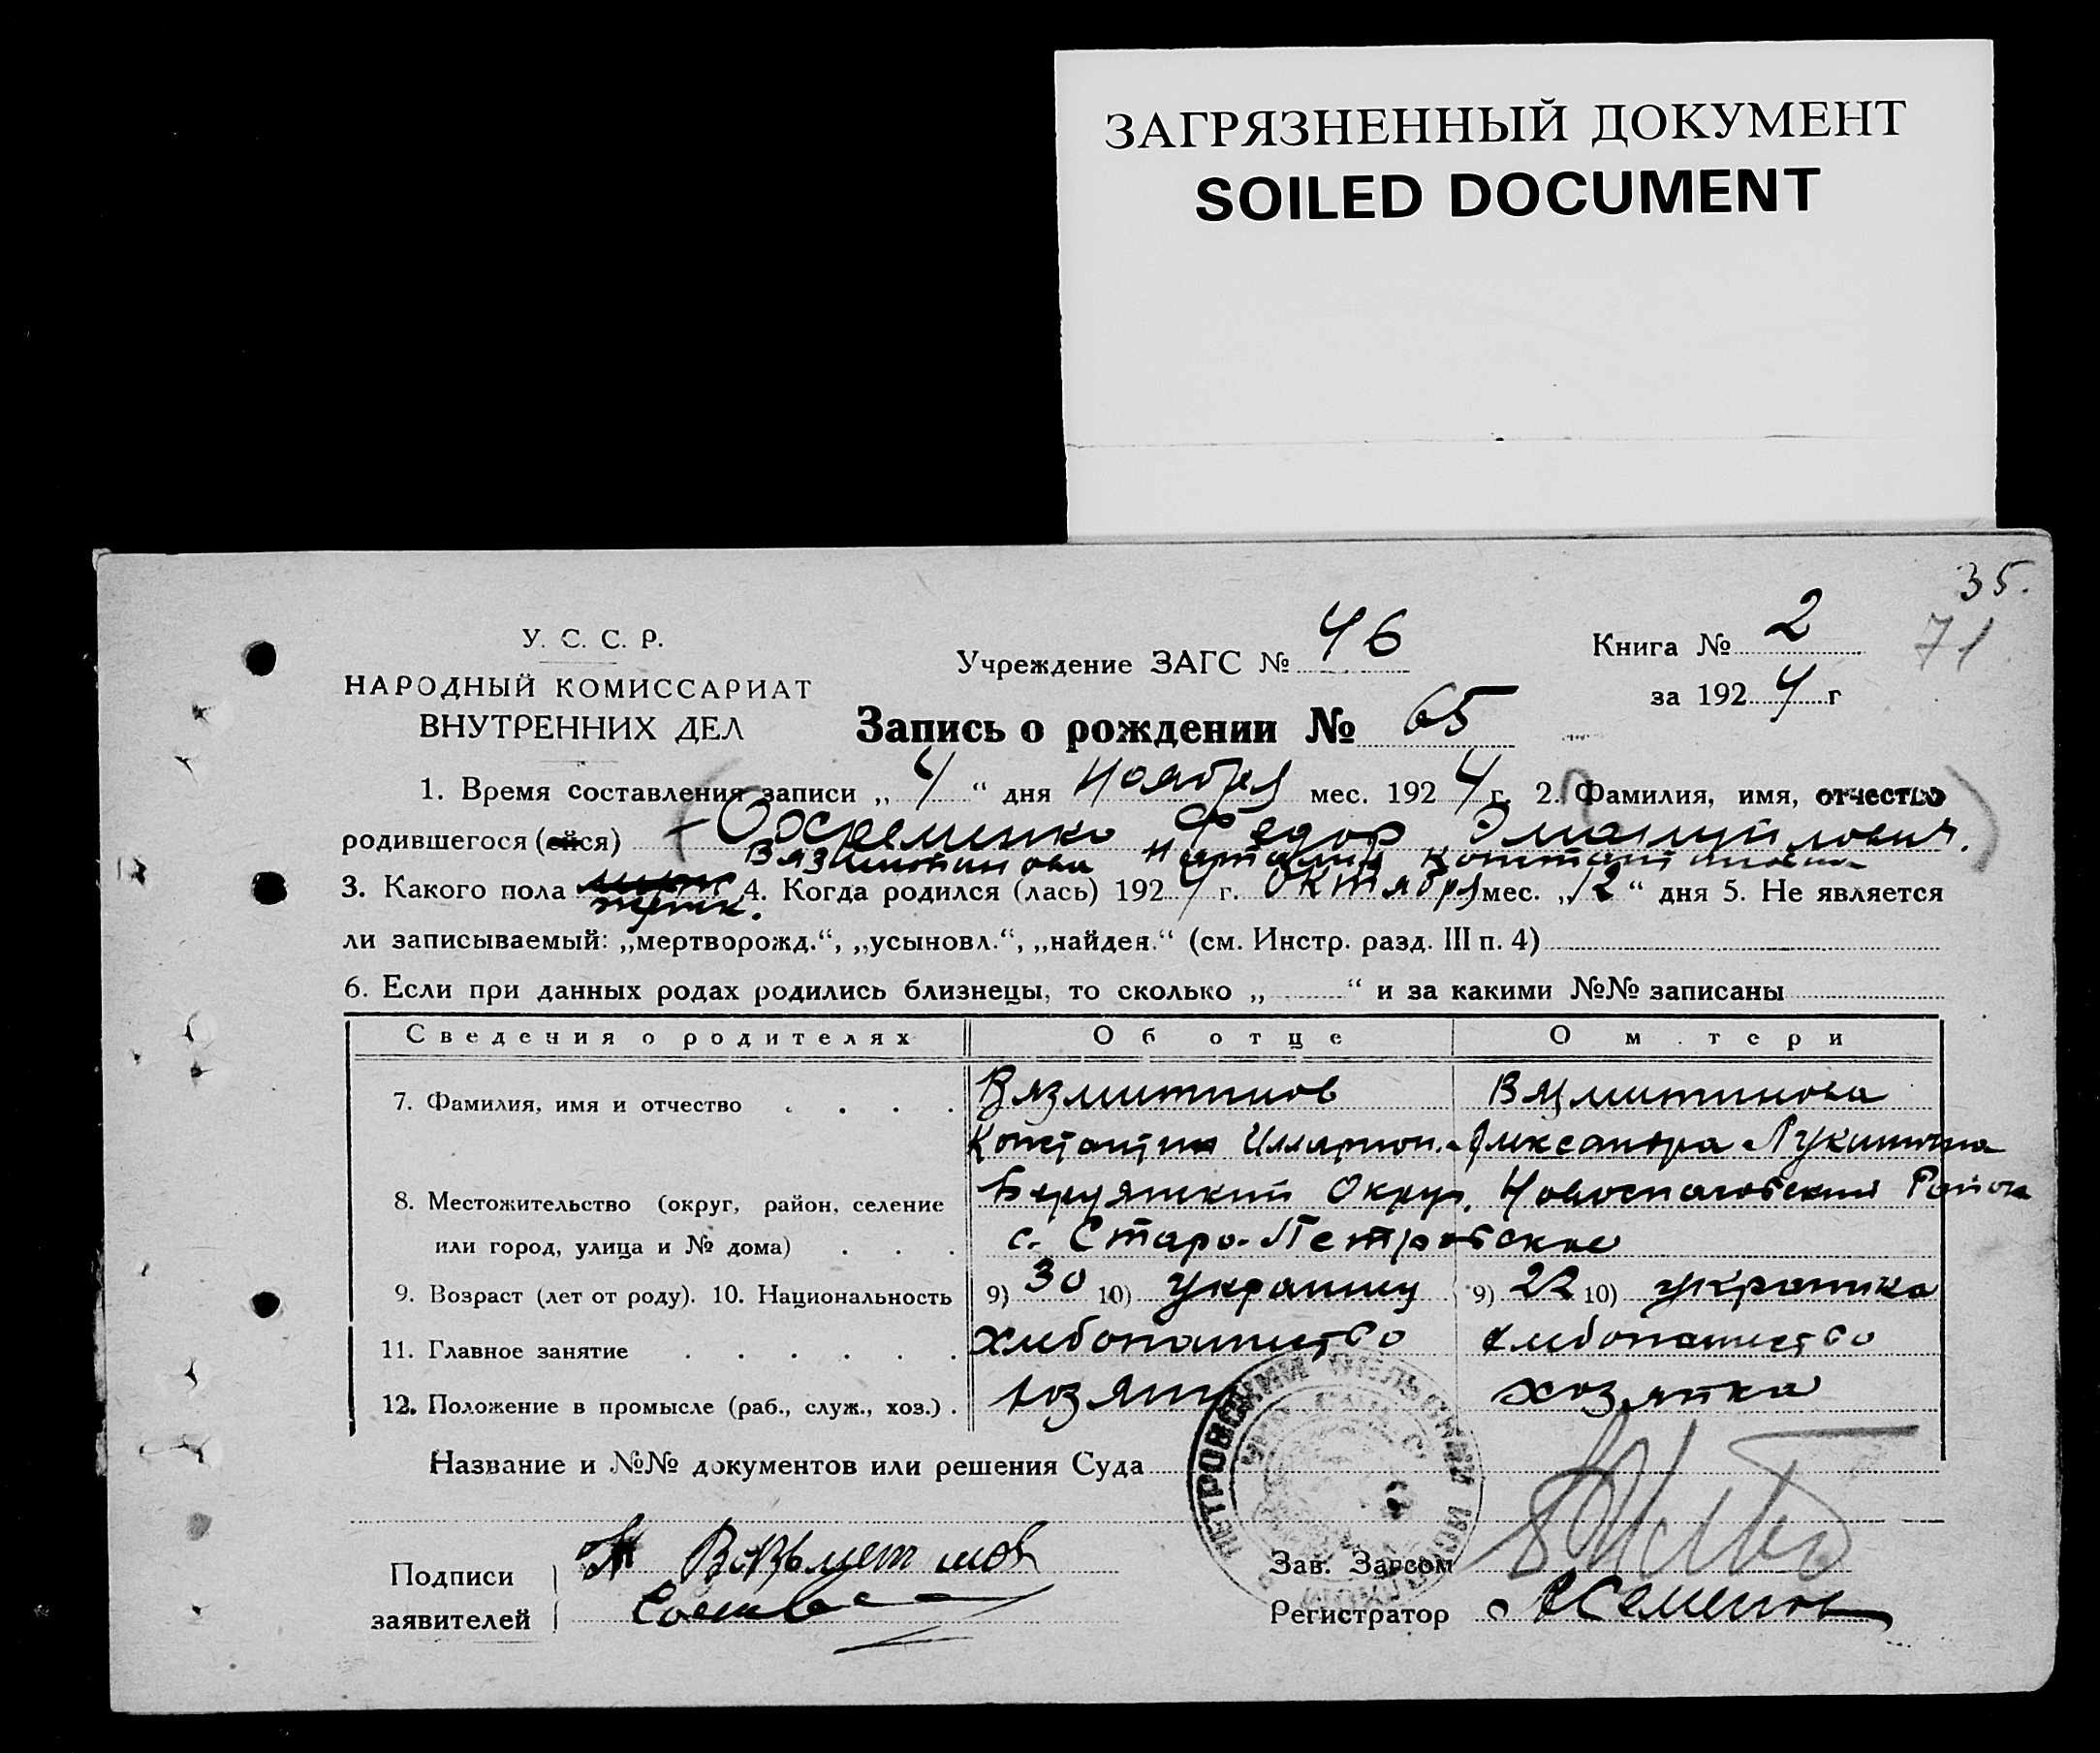 ЗАГРЯЗНЕННЫЙ ДОКУМЕНТ
SOILED DOCUMENT
35.
71
У. С. С. Р.
НАРОДНЫЙ КОМИССАРИАТ
ВНУТРЕННИХ ДЕЛ
Учреждение ЗАГС № 46
Книга № 2
за 1924 г
Запись о рождении № 65
1. Время составления записи „4“ дня Ноября мес. 1924 г. 2. Фамилия, имя, отчество
родившегося (ейся) Охременко Федор Эмануйлович.
Вязмитинова Наталия Константиновна
3. Какого пола 4. Когда родился (лась) 1924 г. Октября мес. „12“ дня 5. Не является
женск.
ли записываемый: „мертворожд.“, „усыновл.“, „найден.“ (см. Инстр. разд. III п. 4)
6. Если при данных родах родились близнецы, то сколько „ “ и за какими №№ записаны
Сведения о родителях Об отце О м тери
7. Фамилия, имя и отчество Вязмитинов Вязмитинова
Константин Илларион. Александра Лукинична
8. Местожительство (округ, район, селение Бердянский Округ, Новоспасовский Район
или город, улица и № дома) с. Старо-Петровское
9. Возраст (лет от роду). 10. Национальность 9) 30 10) Украинец 9) 22 10) украинка
11. Главное занятие хлебопашество хлебопашество
12. Положение в промысле (раб., служ., хоз.) хозяин хозяйка
Название и №№ документов или решения Суда
ПЕТРОВСКИЙ СЕЛЬСКИЙ
Подписи
заявителей
Зав. Загсом
Регистратор Семенов